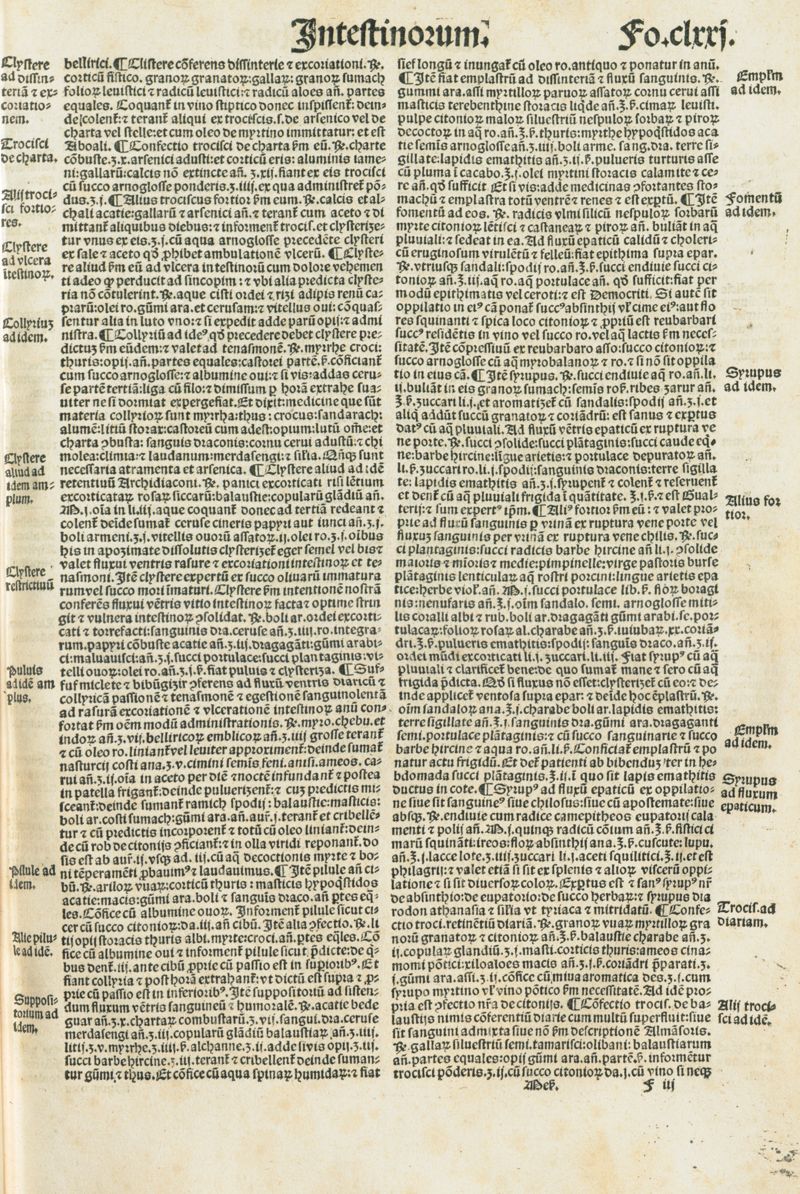 Intestinorum.
Fo.clxxj.
Clystere
ad dissin-
teriã ⁊ ex-
coriatio-
nem.
Trocisci
de charta.
Alij troci-
sci fortio-
res.
Clystere
ad vlcera
ĩtestinoꝝ.
Collyriuʒ
ad idem.
Clystere
aliud ad
idem am-
plum.
Clystere
restrictiuũ
Puluis
ad idẽ am
plus.
Pillule ad
idem.
Alie pilu-
le ad idẽ.
Supposi-
torium ad
idem.
bellirici. ¶ Clistere cõferens dissinterie ⁊ excoriationi. ℞.
corticũ fistico. granoꝝ granatoꝝ: gallaꝝ: granoꝝ sumach
folioꝝ leuistici ⁊ radicũ leuistici: ⁊ radicũ aloes añ. partes
equales. Coquant᷑ in vino stiptico donec inspissent᷑: dein-
de ꝯlent᷑: ⁊ terant᷑ aliqui ex trociscis. s. de arsenico vel de
charta vel stelle: et cum oleo de myrtino immittatur: et est
Aboali. ¶ Confectio trocisci de charta ẜm eũ. ℞. charte
cõbuste. ʒ. x. arsenici adusti: et corticũ eris: aluminis iame-
ni: gallarũ: calcis nõ extincte añ. ʒ. xij. fiant ex eis trocisci
cũ succo arnoglosse ponderis. ʒ. iiij. ex qua administret᷑ põ-
dus. ʒ. j. ¶ Alius trociscus fortior ẜm eum. ℞. calcis et al-
chali acatie: gallarũ ⁊ arsenici añ. ⁊ terant᷑ cum aceto ⁊ di
mittant᷑ aliquibus diebus: ⁊ informent᷑ trocis. et clysterize-
tur vnus ex eis. ʒ. s. cũ aqua arnoglosse precedẽte clysteri
ex sale ⁊ aceto qđ ꝓhibet ambulationẽ vlcerũ. ¶ Clyste-
re aliud ẜm eũ ad vlcera intestinorũ cum dolore vehemen
ti adeo ꝙ perducit ad sincopim: ⁊ vbi alia predicta clyste-
ria nõ cõtulerint. ℞. aque cisti ordei ⁊ rizi adipis renũ ca-
prarũ: olei ro. gũmi ara. et cerusam: ⁊ vitellus oui: cõquas-
sentur alia in luto vno: ⁊ si expedit adde parũ opij: ⁊ admi
nistra. ¶ Collyriũ ad idẽ qđ precedere debet clystere pre-
dictuʒ ẜm eũdem: ⁊ valet ad tenasmonẽ. ℞. myrrhe croci:
thuris: opij. añ. partes equales: castorei partẽ. β. cõficiant᷑
cum succo arnoglosse: ⁊ albumine oui: ⁊ si vis: addas ceru-
se partẽ tertiã: liga cũ filo: ⁊ dimissum ꝑ horã extrahe sua-
uiter ne si dormiat expergefiat. Et dixit: medicine que sũt
materia collyrioꝝ sunt myrrha: thus: crocus: sandarach:
alumẽ: litiũ storax: castoreũ cum adest: opium: lutũ om̃e: et
charta ꝯbusta: sanguis draconis: cornu cerui adustũ: ⁊ chi
molea: climia: ⁊ laudanum: merdasengi: ⁊ silia. Qñqʒ sunt
necessaria atramenta et arsenica. ¶ Clystere aliud ad idẽ
retentiuũ Archidiaconi. ℞. panici excorticati risi lẽtium
excorticataꝝ rosaꝝ siccarũ: balaustie: copularũ glãdiũ añ.
M. j. oĩa in li. iij. aque coquant᷑ donec ad tertiã redeant ⁊
colent᷑ deĩde sumat᷑ ceruse cineris papyri aut iunci añ. ʒ. j.
boli armeni. ʒ. s. vitellis ouorũ assatoꝝ. ij. olei ro. ʒ. s. oĩbus
his in apoʒimate dissolutis clysteriʒet᷑ eger semel vel bis: ⁊
valet fluxui ventris rasure ⁊ excoriationi intestinoꝝ et te-
nasmoni. Itẽ clystere expertũ ex succo oliuarũ immatura
rum vel succo mori imaturi. Clystere ẜm intentionẽ nostrã
conferẽs fluxui vẽtris vitio intestinoꝝ facta: ⁊ optime strin
git ⁊ vulnera intestinoꝝ ꝯsolidat. ℞. boli ar. ordei excorti-
cati ⁊ torrefacti: sanguinis dra. ceruse añ. ʒ. iiij. ro. integra-
rum. papyri cõbuste acatie añ. ʒ. iij. dragagãti: gũmi arabi-
ci: maluauisci: añ. ʒ. j. succi portulace: succi plantaginis: vi-
telli ouoꝝ: olei ro. añ. ʒ. j. β. fiat puluis ⁊ clysteriza. ¶ Suf-
fuf miclete ⁊ bibũgiʒir ꝯferens ad fluxũ ventris diaricũ ⁊
collyricã passionẽ ⁊ tenasmonẽ ⁊ egestionẽ sanguinolentã
ad rasurã excoriationẽ ⁊ vlcerationẽ intestinoꝝ anũ con-
fortat ẜm oẽm modũ administrationis. ℞. myro. chebu. et
indoꝝ añ. ʒ. vij. belliricoꝝ emblicoꝝ añ. ʒ. iiij grosse terant᷑
⁊ cũ oleo ro. liniant᷑ vel leuiter approximent᷑: deinde sumat᷑
nasturcij costi ana. ʒ. v. cimini semis feni. anisi. ameos. ca-
rui añ. ʒ. ij. oĩa in aceto per diẽ ⁊ noctẽ infundant᷑ ⁊ postea
in patella frigant᷑: deinde pulueriʒent᷑: ⁊ cuʒ predictis mi-
sceant᷑: deinde sumant᷑ ramich spodij: balaustie: masticis:
boli ar. costi sumach: gũmi ara. añ. aur̃. j. terant᷑ et cribellẽ-
tur ⁊ cũ predictis incorporent᷑ ⁊ totũ cũ oleo liniant᷑: dein-
de cũ rob de citonijs ꝯficiant᷑: ⁊ in olla viridi reponant᷑. do
sis est ab auf̃. ij. vsqʒ ad. iij. cũ aq̃ decoctionis myrte ⁊ bo-
ni tẽperamẽti ꝓbauimꝰ ⁊ laudauimus. ¶ Itẽ pillule añ ci-
bũ. ℞. ariloꝝ vuaꝝ: corticũ thuris: masticis hypoqstidos
acatie: macis: gũmi ara. boli ⁊ sanguis draco. añ ptes eq-
les. Cõfice cũ albumine ouoꝝ. Informent᷑ pilule sicut ci-
cer cũ succo citonioꝝ: da. iij. añ cibũ. Itẽ alia ꝯfectio. ℞. li
tij opij storacis thuris albi. myrte: croci. añ. ptes eq̃les. Cõ
fice cũ albumine oui ⁊ informent᷑ pilule sicut p̃dicte: de q̃-
bus dent᷑. iij. ante cibũ ꝓprie cũ passio est in supioribꝰ. Et
fiant collyria ⁊ post horã extrahant᷑: vt dictũ est supra ⁊ ꝓ-
prie cũ passio est in inferioribꝰ. Itẽ suppositoriũ ad sisten-
dum fluxum ventris sanguineũ ⁊ humoralẽ. ℞. acatie bede
guar añ. ʒ. x. chartaꝝ combustaꝝ. ʒ. vij. sangui. dra. ceruse
merdasengi añ. ʒ. iij. copularũ glãdiũ balaustiaꝝ añ. ʒ. iiij.
litij. ʒ. v. myrrhe. ʒ. iij. β. alchanne. ʒ. ij. adde si vis opij. ʒ. ij.
succi barbe hircine. ʒ. iij. terant᷑ ⁊ cribellent᷑ deinde suman-
tur gũmi ⁊ thus. Et cõfice cũ aqua spinaꝝ humidaꝝ: ⁊ fiat
sief longũ ⁊ inungat᷑ cũ oleo ro. antiquo ⁊ ponatur in anũ.
¶ Itẽ fiat emplastrũ ad dissinteriã ⁊ fluxũ sanguinis. ℞.
gummi ara. assi myrtilloꝝ paruoꝝ assatoꝝ cornu cerui assi
masticis terebenthine storacis liq̃de añ. ʒ. β. cimaꝝ leuisti.
pulpe citonioꝝ maloꝝ siluestriũ nespuloꝝ sorbaꝝ ⁊ piroꝝ
decoctoꝝ in aq̃ ro. añ. ʒ. β. thuris: myrthe hypoqstidos aca
tie semĩs arnoglosse añ. ʒ. iij. boli arme. sang. dra. terre si-
gillate: lapidis emathitis añ. ʒ. ij. β. pulueris turturis asse
cũ pluma ĩ cacabo. ʒ. j. olei myrtini storacis calamite ⁊ ce-
re añ. qđ sufficit Et si vis: adde medicinas ꝯfortantes sto-
machũ ⁊ emplastra totũ ventrẽ ⁊ renes ⁊ est exp̃tũ. ¶ Itẽ
fomentũ ad eos. ℞. radicis vlmi silicũ nespuloꝝ sorbarũ
myrte citonioꝝ lẽtisci ⁊ castaneaꝝ ⁊ piroꝝ añ. buliãt in aq̃
pluuiali: ⁊ sedeat in ea. Ad fluxũ epaticũ calidũ ⁊ choleri-
cũ eruginosum virulẽtũ ⁊ felleũ: fiat epithima supra epar.
℞. vtriusqʒ sandali: spodij ro. añ. ʒ. β. succi endiuie succi ci-
tonioꝝ añ. ʒ. iij. aq̃ ro. aq̃ portulace añ. qđ sufficit: fiat per
modũ epithimatis vel ceroti: ⁊ est Democriti. Si autẽ sit
oppilatio in eiꝰ cã ponat᷑ succꝰ absinthij vl̃ cime eiꝰ: aut flo
res squinanti ⁊ spica loco citonioꝝ ⁊ ꝓpriũ est reubarbari
succꝰ residẽtis in vino vel succo ro. vel aq̃ lactis ẜm neces-
sitatẽ. Itẽ cõpressiuũ ex reubarbaro asso: succo citonioꝝ: ⁊
succo arnoglosse cũ aq̃ myrobalanoꝝ ⁊ ro. ⁊ si nõ sit oppila
tio in eius cã. ¶ Itẽ syrupus. ℞. succi endiuie aq̃ ro. añ. li.
ij. buliãt in eis granoꝝ sumach: semĩs ro. β. ribes ʒarur añ.
ʒ. β. ʒuccari li. j. et aromatiʒet᷑ cũ sandalis: spodij añ. ʒ. j. et
aliq̃ addũt succũ granatoꝝ ⁊ coriãdrũ: est sanus ⁊ exp̃tus
datꝰ cũ aq̃ pluuiali. Ad fluxũ vẽtris epaticũ ex ruptura ve
ne porte. ℞. succi ꝯsolide: succi plãtaginis: succi caude eq̃-
ne: barbe hircine: lĩgue arietis: ⁊ portulace depuratoꝝ añ.
li. β. ʒuccari li. j. spodij: sanguinis draconis: terre sigilla
te: lapidis emathitis añ. ʒ. j. syrupent᷑ ⁊ colent᷑ ⁊ reseruent᷑
et dent᷑ cũ aq̃ pluuiali frigida ĩ q̃titate. ʒ. j. β. ⁊ est Gual-
terij: ⁊ sum expertꝰ ip̃m. ¶ Aliꝰ fortior ẜm eũ: ⁊ valet pro-
prie ad fluxũ sanguinis ꝑ vrinã ex ruptura vene porte vel
fluxuʒ sanguinis per vrinã ex ruptura vene chilis. ℞. suc-
ci plantaginis: succi radicis barbe hircine añ li. j. ꝯsolide
maioris ⁊ mĩoris ⁊ medie: pimpinelle: virge pastoris burse
plãtaginis lenticulaꝝ aq̃ rostri porcini: lingue arietis epa
tice: herbe violaꝝ. añ. M. j. succi portulace lib. β. floꝝ boragi
nis: nenufaris añ. ʒ. j. oĩm sandalo. semi. arnoglosse miti-
lis coralli albi ⁊ rub. boli ar. dragagãti gũmi arabi. se. por-
tulacaꝝ: folioꝝ rosaꝝ al. charabe añ. ʒ. β. iuiubaꝝ. xx. coriã-
dri. ʒ. β. pulueris emathitis: spodij: sanguinis draco. añ. ʒ. ij.
ordei mũdi excorticati li. j. ʒuccari. li. iij. Fiat syrupꝰ cũ aq̃
pluuiali ⁊ clarificet᷑ bene: de quo sumat᷑ mane ⁊ sero cũ aq̃
frigida p̃dicta. Qđ si fluxus nõ esset: clysteriʒet᷑ cũ eo: ⁊ de-
inde applicet᷑ ventosa supra epar: ⁊ deĩde hoc ẽplastrũ. ℞.
oĩm sandaloꝝ ana. ʒ. j. charabe boli ar. lapidis emathitis:
terre sigillate añ. ʒ. j. sanguinis dra. gũmi ara. dragaganti
semi. portulace plãtaginis: ⁊ cũ succo sanguinarie ⁊ succo
barbe hircine ⁊ aqua ro. añ. li. β. Conficiat᷑ emplastrũ ⁊ po
natur actu frigidũ. Et det᷑ patienti ab bibenduʒ ter in he-
bdomada succi plãtaginis. ʒ. ij. ĩ quo sit lapis emathitis
ductus in cote. ¶ Syrupꝰ ad fluxũ epaticũ ex oppilatio-
ne siue sit sanguineꝰ siue chilosus: siue cũ apostemate: siue
absqʒ. ℞. endiuie cum radice camepitheos eupatorij cala
menti ⁊ polij añ. M. j. quinqʒ radicũ cõium añ. ʒ. β. fistici ci
marũ squinãti: ireos: floꝝ absinthij ana. ʒ. β. cuscute: lupu.
añ. ʒ. j. lacce lote. ʒ. iiij. ʒuccari li. j. aceti squilitici. ʒ. ij. et est
philagrij: ⁊ valet etiã si sit ex splenis ⁊ alioꝝ viscerũ oppi-
latione ⁊ si sit diuersoꝝ coloꝝ. Exp̃tus est ⁊ sanꝰ syrupꝰ nr̃
de absinthio: de eupatorio: de succo herbaꝝ: ⁊ syrupus dia
rodon athanasia ⁊ silia vt tyriaca ⁊ mitridatũ. ¶ Confe-
ctio troci. retinẽtiũ diariã. ℞. granoꝝ vuaꝝ myrtilloꝝ gra
norũ granatoꝝ ⁊ citonioꝝ añ. ʒ. β. balaustie charabe añ. ʒ.
ij. copulaꝝ glandiũ. ʒ. j. masti. corticis thuris: ameos cina-
momi põtici: xiloaloes macis añ. ʒ. j. β. coriãdri p̃parati. ʒ.
j. gũmi ara. assi. ʒ. ij. cõfice cũ miua aromatica des. ʒ. j. cum
syrupo myrtino vl̃ cũ vino põtico ẜm necessitatẽ. Ad idẽ pro-
pria est ꝯfectio nr̃a de citonijs. ¶ Cõfectio trocis. de ba-
laustijs nimis cõferentiũ diarie cum multũ superfluit: siue
sit sanguini admixta siue non ẜm descriptionẽ Almãsoris.
℞. gallaꝝ siluestriũ semi. tamarisci: olibani: balaustiarum
añ. partes equales: opij gũmi ara. añ. partẽ. β. informẽtur
trocisci põderis. ʒ. ij. cũ succo citonioꝝ da. j. cũ vino si neqʒ
Mes.
F iij
Emplm̃
ad idem.
Fomentũ
ad idem.
Syrupus
ad idem.
Alius for
tior.
Emplm̃
ad idem.
Syrupus
ad fluxum
epaticum.
Trocis. ad
diariam.
Alij troci-
sci ad idẽ.